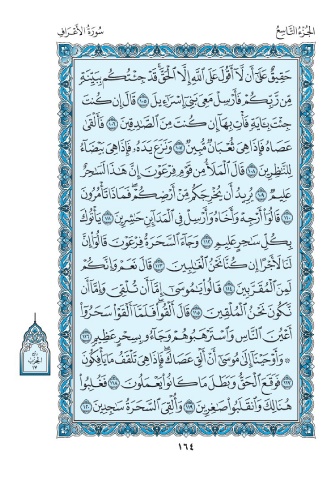 الجزء التاسع
سورة الأعراف
حَقِيقٌ عَلَىٰ أَن لَّا أَقُولَ عَلَى اللَّهِ إِلَّا الْحَقَّ قَدْ جِئْتُكُم بِبَيِّنَةٍ
مِّن رَّبِّكُمْ فَأَرْسِلْ مَعِيَ بَنِي إِسْرَائِيلَ ١٠٥ قَالَ إِن كُنتَ
جِئْتَ بِآيَةٍ فَأْتِ بِهَا إِن كُنتَ مِنَ الصَّادِقِينَ ١٠٦ فَأَلْقَىٰ
عَصَاهُ فَإِذَا هِيَ ثُعْبَانٌ مُّبِينٌ ١٠٧ وَنَزَعَ يَدَهُ فَإِذَا هِيَ بَيْضَاءُ
لِلنَّاظِرِينَ ١٠٨ قَالَ الْمَلَأُ مِن قَوْمِ فِرْعَوْنَ إِنَّ هَٰذَا لَسَاحِرٌ
عَلِيمٌ ١٠٩ يُرِيدُ أَن يُخْرِجَكُم مِّنْ أَرْضِكُمْ فَمَاذَا تَأْمُرُونَ
١١٠ قَالُوا أَرْجِهْ وَأَخَاهُ وَأَرْسِلْ فِي الْمَدَائِنِ حَاشِرِينَ ١١١ يَأْتُوكَ
بِكُلِّ سَاحِرٍ عَلِيمٍ ١١٢ وَجَاءَ السَّحَرَةُ فِرْعَوْنَ قَالُوا إِنَّ
لَنَا لَأَجْرًا إِن كُنَّا نَحْنُ الْغَالِبِينَ ١١٣ قَالَ نَعَمْ وَإِنَّكُمْ
لَمِنَ الْمُقَرَّبِينَ ١١٤ قَالُوا يَا مُوسَىٰ إِمَّا أَن تُلْقِيَ وَإِمَّا أَن
نَّكُونَ نَحْنُ الْمُلْقِينَ ١١٥ قَالَ أَلْقُوا فَلَمَّا أَلْقَوْا سَحَرُوا
أَعْيُنَ النَّاسِ وَاسْتَرْهَبُوهُمْ وَجَاءُوا بِسِحْرٍ عَظِيمٍ ١١٦
۞ وَأَوْحَيْنَا إِلَىٰ مُوسَىٰ أَنْ أَلْقِ عَصَاكَ فَإِذَا هِيَ تَلْقَفُ مَا يَأْفِكُونَ
١١٧ فَوَقَعَ الْحَقُّ وَبَطَلَ مَا كَانُوا يَعْمَلُونَ ١١٨ فَغُلِبُوا
هُنَالِكَ وَانقَلَبُوا صَاغِرِينَ ١١٩ وَأُلْقِيَ السَّحَرَةُ سَاجِدِينَ ١٢٠
الحزب
١٧
١٦٤